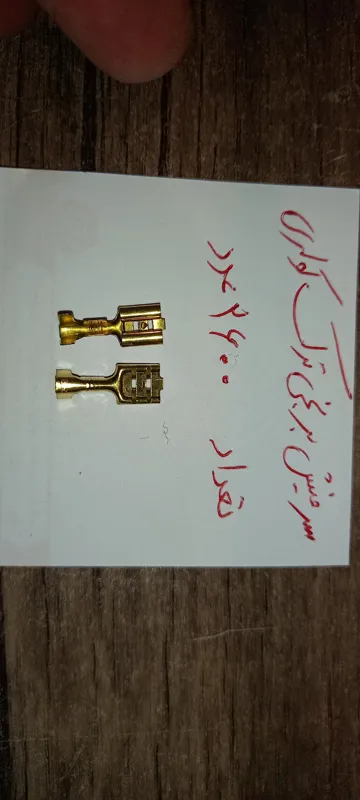 سرفیش برنجی ترک کولری
تعداد ۲۶۰۰ عدد